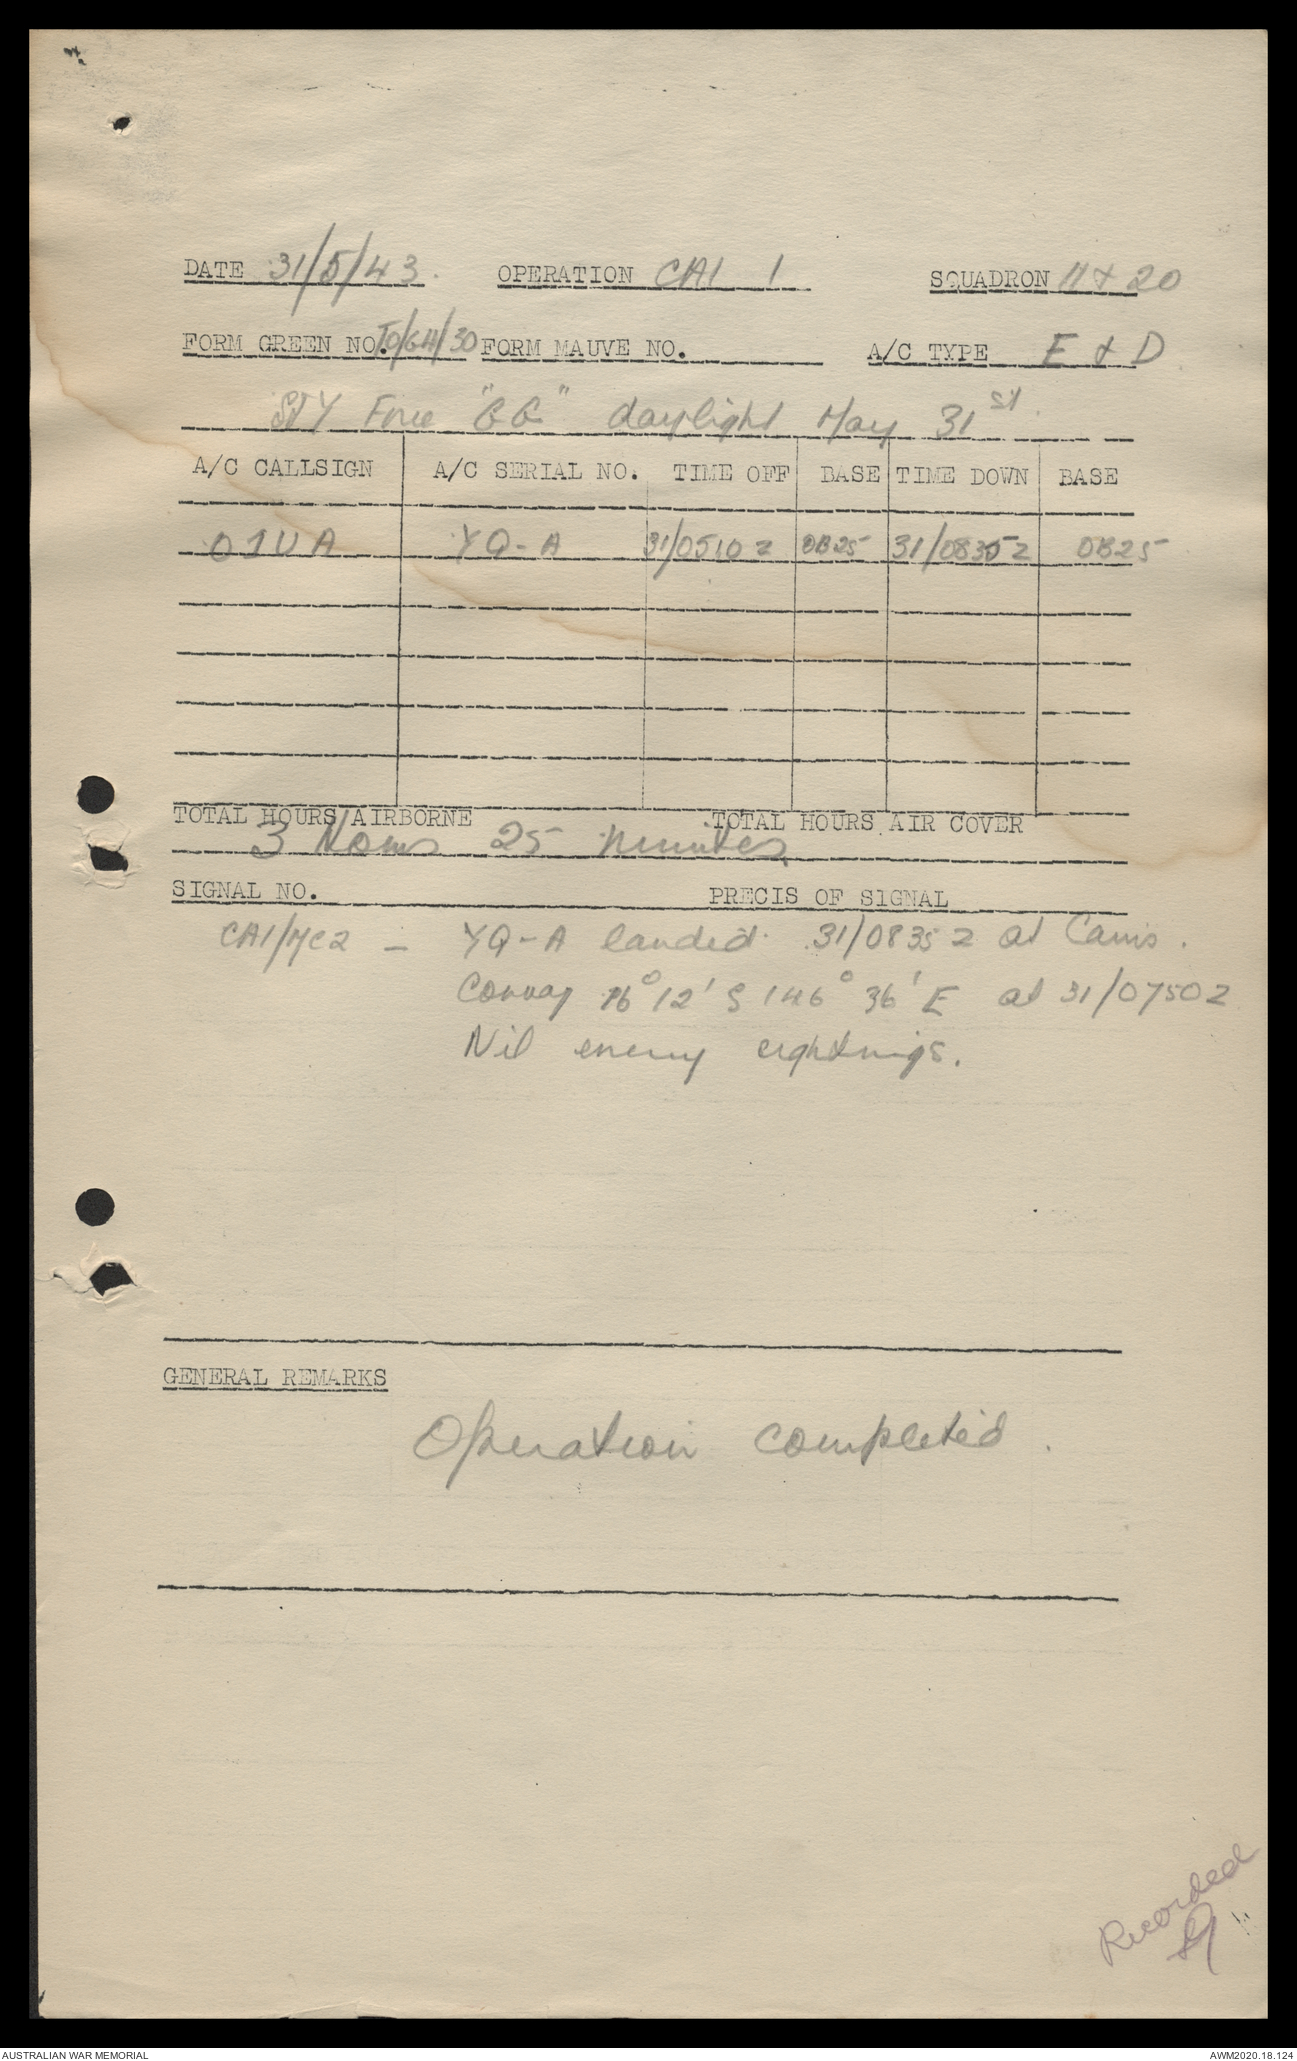 DATE 31/5/43. OPERATION CAI 1 SQUADRON 11 & 20
FORM GREEN NO. TO/GH/30 FORM MAUVE NO. A/C TYPE E & D
Force "GG" daylight May 31st.
A/C CALLSIGN A/C SERIAL NO. TIME OFF BASE TIME DOWN BASE
OJUA YQ-A 31/0510Z OB25 31/0835Z OB25
TOTAL HOURS AIRBORNE TOTAL HOURS AIR COVER
3 Hours 25 minutes
SIGNAL NO. PRECIS OF SIGNAL
CAI/MC2 - YQ-A landed 31/0835Z at Cairns.
Convoy 16° 12' S 146° 36' E at 31/0750Z
Nil enemy sightings.
GENERAL REMARKS
Operation completed.
Recorded
AUSTRALIAN WAR MEMORIAL AWM2020.18.124